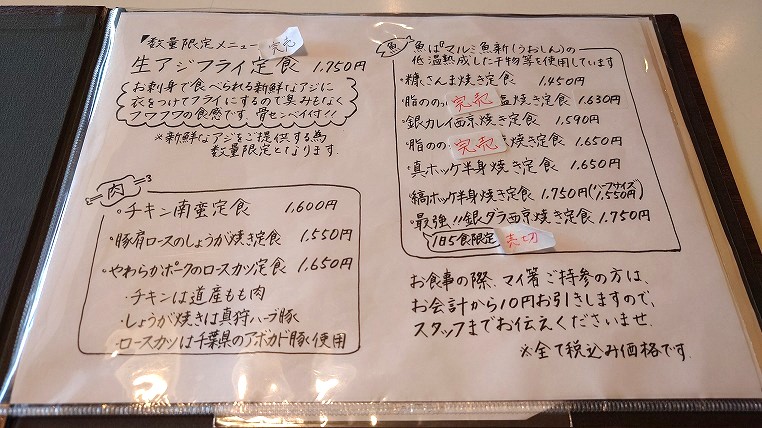 『数量限定メニュー 完売
生アジフライ定食 1,750円
お刺身で食べられる新鮮なアジに
衣をつけてフライにするので臭みもなく
フワフワの食感です。骨センベイ付!!
※新鮮なアジをご提供する為
数量限定となります。
肉
・チキン南蛮定食 1,600円
・豚肩ロースのしょうが焼き定食 1,550円
・やわらかポークのロースカツ定食 1,650円
・チキンは道産もも肉
・しょうが焼きは真狩ハーブ豚
・ロースカツは千葉県のアボカド豚使用
魚
魚は『マルミ魚新(うおしん)の
低温熟成した干物等を使用しています
・糠さんま焼き定食 1,450円
・脂のの 完売 塩焼き定食 1,630円
・銀カレイ西京焼き定食 1,590円
・脂のの 完売 焼き定食 1,650円
・真ホッケ半身焼き定食 1,650円
・縞ホッケ半身焼き定食 1,750円(ハーフサイズ 1,550円)
・最強!!銀ダラ西京焼き定食 1,750円
1日5食限定 売切
お食事の際、マイ箸ご持参の方は、
お会計から10円お引きしますので、
スタッフまでお伝えくださいませ.
※全て税込み価格です.